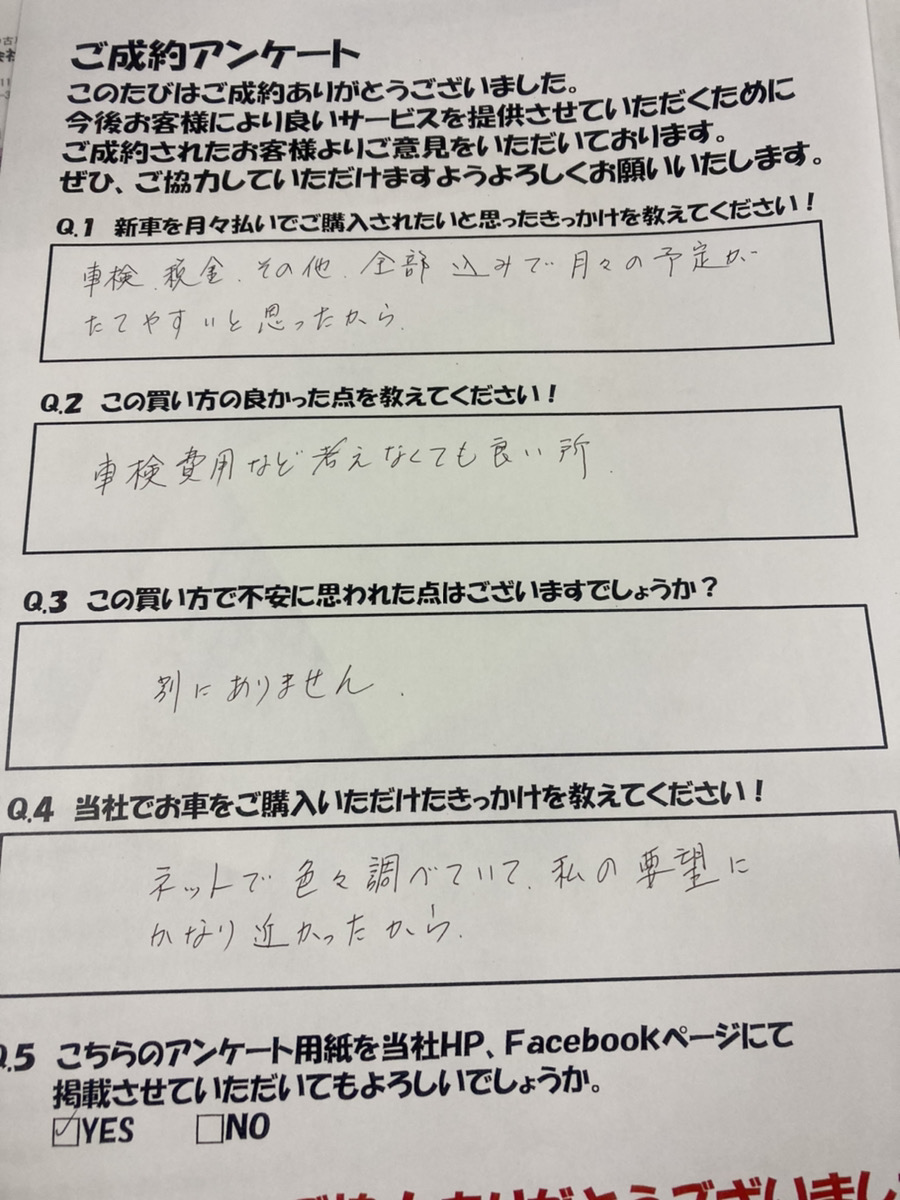 ご成約アンケート
このたびはご成約ありがとうございました。
今後お客様により良いサービスを提供させていただくために
ご成約されたお客様よりご意見をいただいております。
ぜひ、ご協力していただけますようよろしくお願いいたします。
Q.1 新車を月々払いでご購入されたいと思ったきっかけを教えてください！
車検、税金、その他、全部込みで月々の予定が
たてやすいと思ったから.
Q.2 この買い方の良かった点を教えてください！
車検費用など考えなくても良い所.
Q.3 この買い方で不安に思われた点はございますでしょうか？
別にありません.
Q.4 当社でお車をご購入いただけたきっかけを教えてください！
ネットで色々調べていて、私の要望に
かなり近かったから.
Q.5 こちらのアンケート用紙を当社HP、Facebookページにて
掲載させていただいてもよろしいでしょうか。
☑YES □NO
ありがとうございまし